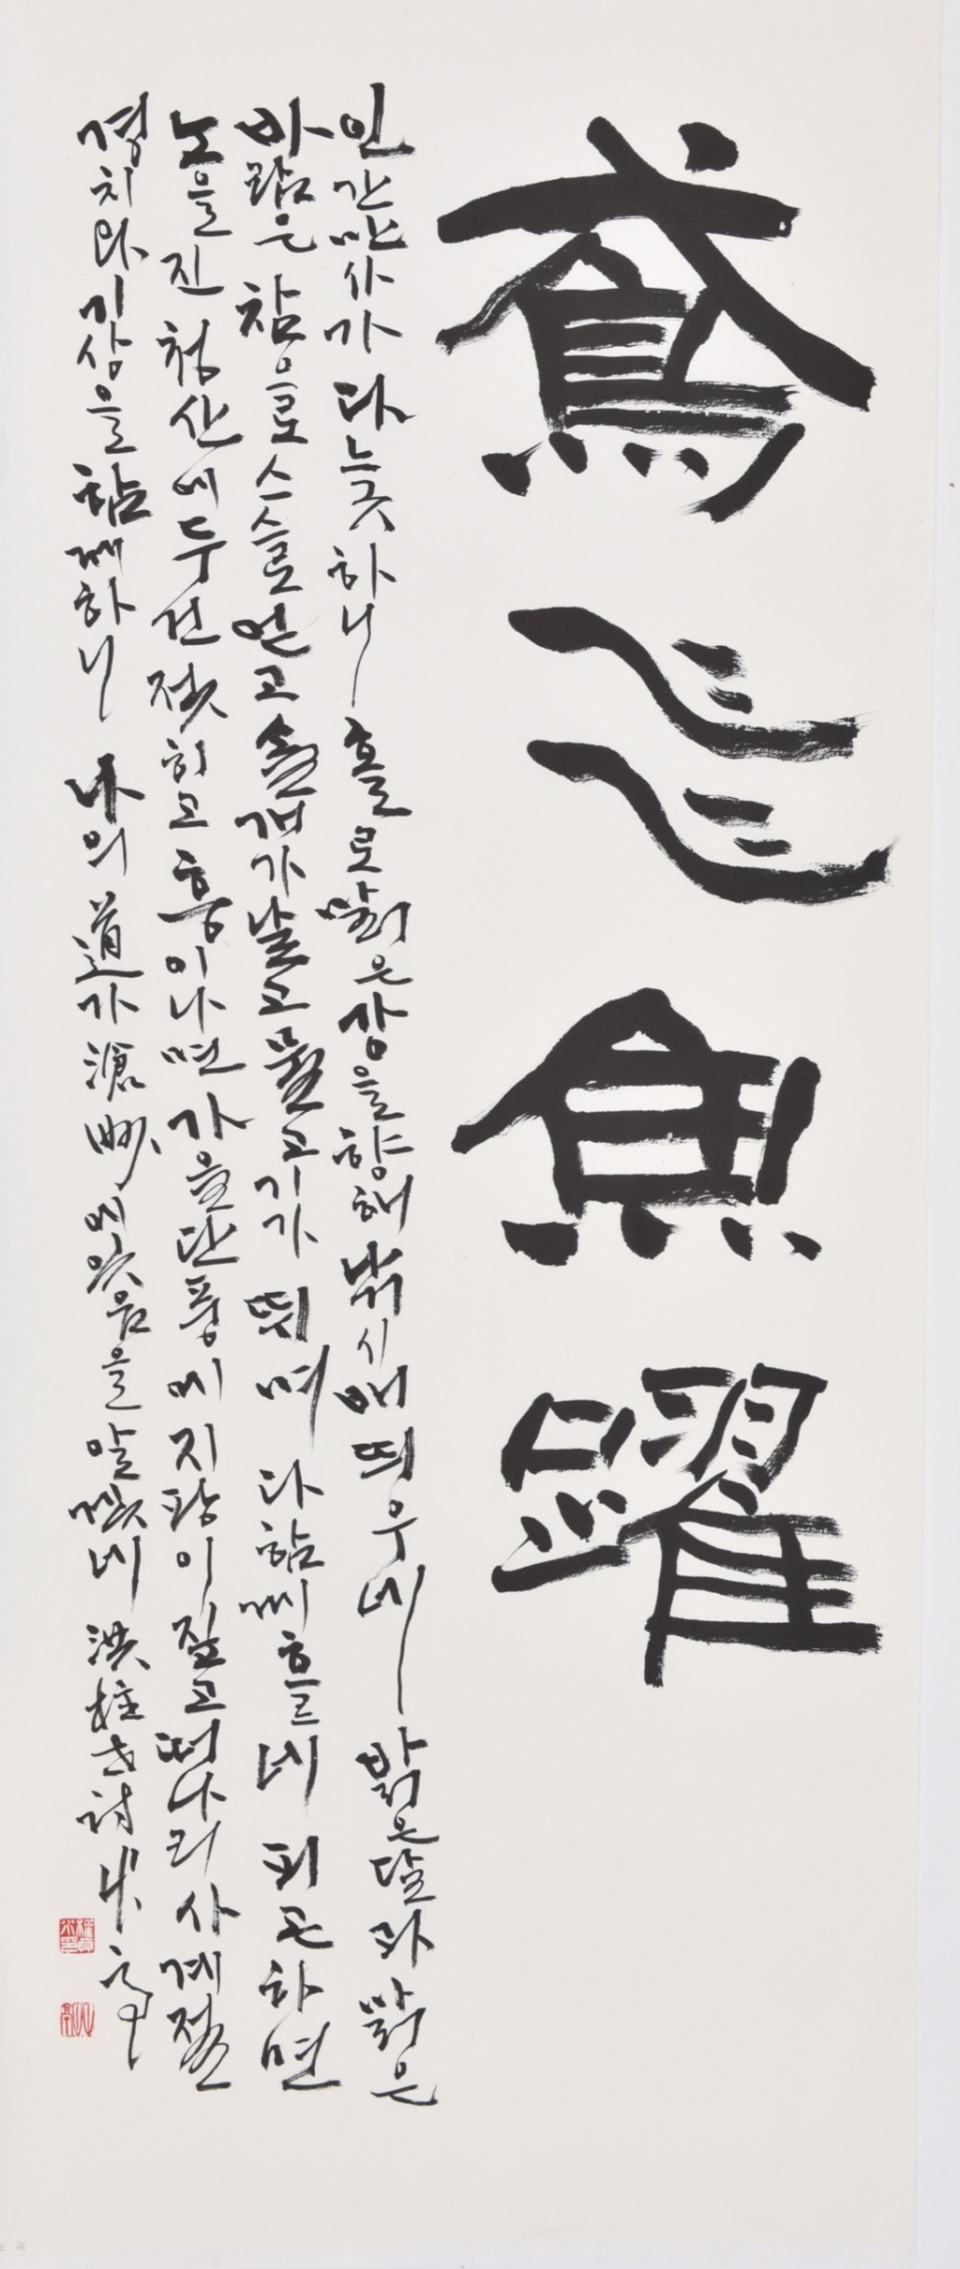 鳶飛魚躍
인간만사가 다 늦하니 홀로 맑은 강을 향해 낚시배 띄우네 밝은 달과 맑은
바람은 참으로 스스로 얻고 솔개가 날고 물고기가 뛰며 다 함께 흐르네 피곤하면
노을진 청산에 두건 젖히고 흥이 나면 가을 단풍에 지팡이 짚고 떠나리 사계절
경치와 기상을 함께하니 나의 道가 滄 에 있음을 알겠네 洪柱世詩